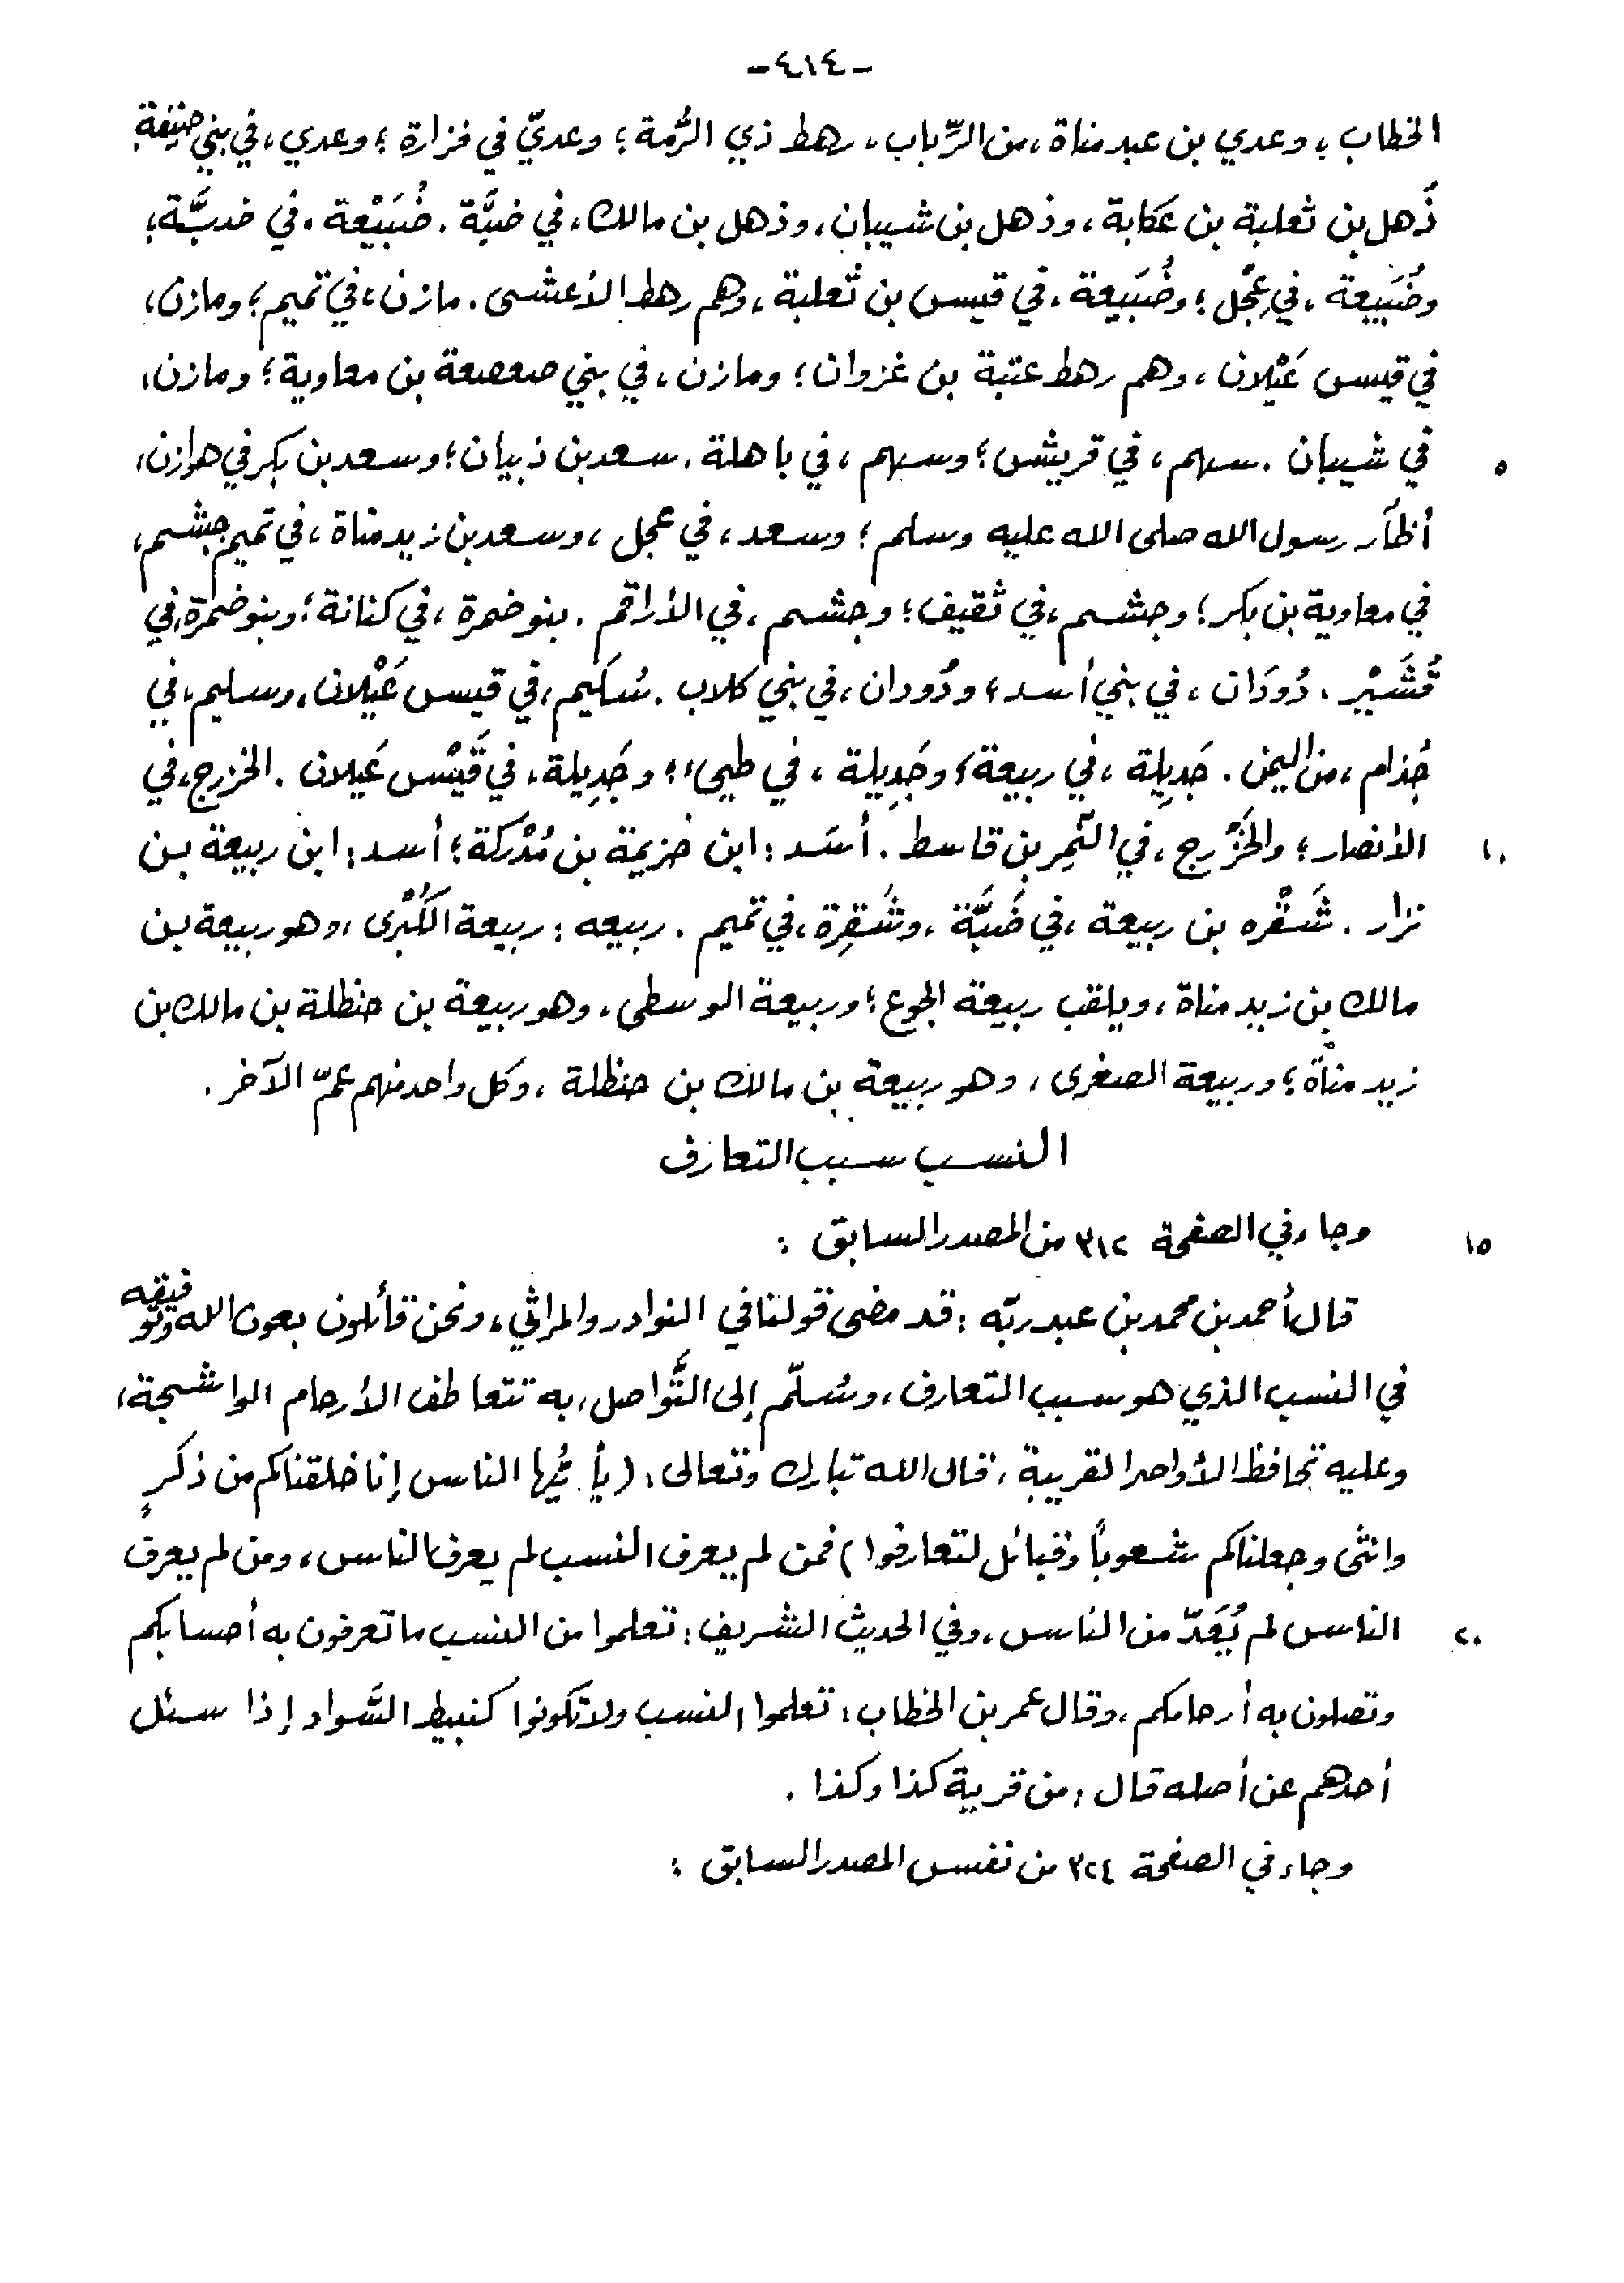 -٤١٤-
الخطاب ؛ وعدي بن عبد مناة ، من الرِّباب ، رهط ذي الرُّمة ؛ وعديّ في فزارة ؛ وعدي ، في بني حنيفة .
ذُهل بن ثعلبة بن عَكابة ، وذهل بن شيبان ، وذهل بن مالك ، في ضبَّة . ضُبَيْعة ، في ضبَّة ؛
وضُبَيعة ، في عِجْل ؛ وضُبَيعة ، في قيس بن ثعلبة ، وهم رهط الأعشى . مازن ، في تميم ؛ ومازن ،
في قيس عَيْلان ، وهم رهط عتبة بن غزوان ؛ ومازن ، في بني صعصعة بن معاوية ؛ ومازن ،
٥ في شيبان . سهم ، في قريش ؛ وسهم ، في باهلة . سعد بن ذبيان ؛ وسعد بن بكر في هوازن ،
أظآر رسول الله صلى الله عليه وسلم ؛ وسعد ، في عجل ، وسعد بن زيد مناة ، في تميم . جشم ،
في معاوية بن بكر ؛ وجشم ، في ثقيف ؛ وجشم ، في الأراقم . بنو ضمرة ، في كنانة ؛ وبنو ضمرة ، في
قُشَيْر . دُودَان ، في بني أسد ؛ ودُودان ، في بني كلاب . سُلَيم ، في قيس عَيْلان ، وسليم ، في
جُذام ، من اليمن . جَدِيلة ، في ربيعة ؛ وجَدِيلة ، في طيىء ؛ وجَدِيلة ، في قَيْس عَيلان . الخزرج ، في
١٠ الأنصار ؛ والخَزْرج ، في النَّمِر بن قاسط . أسَد : ابن خزيمة بن مُدْركة ؛ أسد : ابن ربيعة بن
نزار . شَقْره بن ربيعة ، في ضَبَّة ، وشَقِرة ، في تميم . ربيعه : ربيعة الكُبْرى ، وهو ربيعة بن
مالك بن زيد مناة ، ويلقب ربيعة الجوع ؛ وربيعة الوسطى ، وهو ربيعة بن حنظلة بن مالك بن
زيد مناة ؛ وربيعة الصغرى ، وهو ربيعة بن مالك بن حنظلة ، وكل واحد منهم عمّ الآخر .
النسب سبب التعارف
١٥ وجاء في الصفحة ٣١٢ من المصدر السابق :
قال أحمد بن محمد بن عبد ربّه : قد مضى قولنا في النوادر والمراثي ، ونحن قائلون بعون الله وتوفيقه
في النسب الذي هو سبب التعارف ، وسُلّم إلى التَّواصل ، به تتعاطف الأرحام الواشجة ،
وعليه تحافظ الأواصر القريبة ، قال الله تبارك وتعالى : ( يأيُّها الناس إنا خلقناكم من ذكرٍ
وانثى وجعلناكم شعوباً وقبائل لتعارفوا ) فمن لم يعرف النسب لم يعرف الناس ، ومن لم يعرف
٢٠ الناس لم يُعَدّ من الناس ، وفي الحديث الشريف : تعلموا من النسب ما تعرفون به أحسابكم
وتصلون به أرحامكم ، وقال عمر بن الخطاب : تعلموا النسب ولا تكونوا كنبيط السَّواد إذا سئل
أحدهم عن أصله قال : من قرية كذا وكذا .
وجاء في الصفحة ٣٢٤ من نفس المصدر السابق :